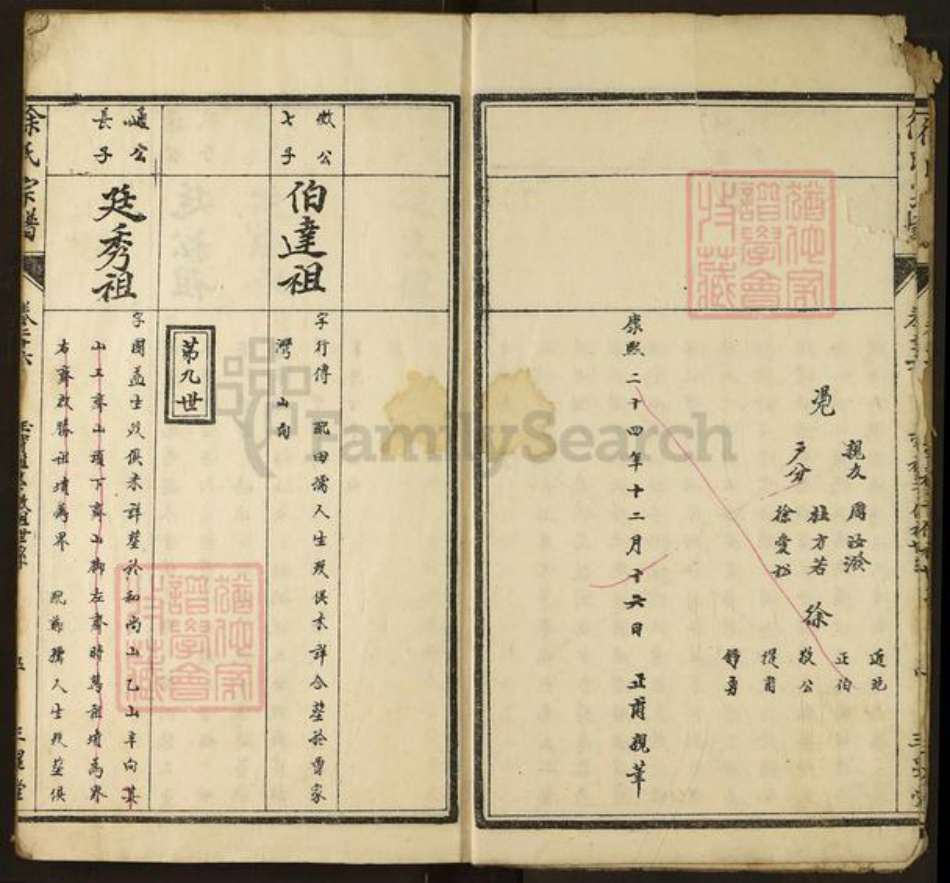 憑
親友
周汝濱
桂方若
戶分
徐愛松
徐
近菀
正伯
敬公
從甫
舒勇
康熙二十四年十二月十六日 正甫親筆
徽公
七子
伯達祖
字行傳 配田孺人生歿俱未詳合塟於曹家
灣 山向
第九世
暹公
長子
廷秀祖
字國益生歿俱未詳塟於和尚山乙山辛向其
山上齊山頂下齊山脚左齊時萬祖墳為界
右齊啟勝祖墳為界 配蔡孺人生歿塟俱
徐氏宗譜
三星堂
猶他家
譜學會
收藏
猶他家
譜學會
收藏
FamilySearch